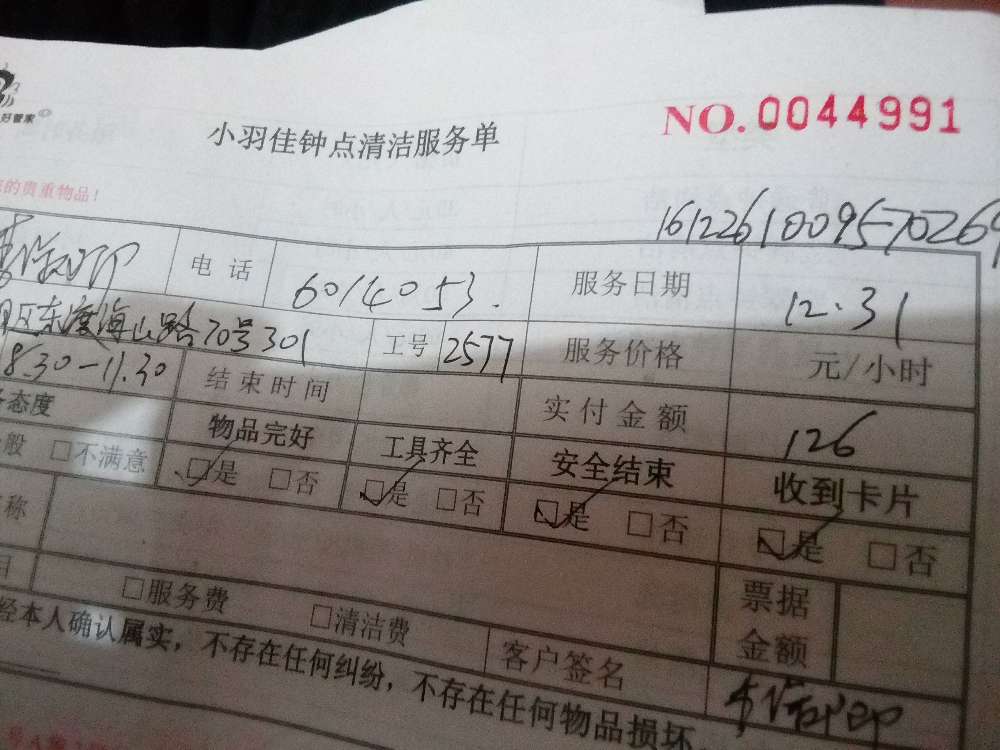 好管家
NO.0044991
小羽佳钟点清洁服务单
的贵重物品！
1612261009570269
电话 6014053. 服务日期 12.31
东渡海山路70号301 工号 2577 服务价格 元/小时
8.30-11.30 结束时间 实付金额 126
态度 物品完好 工具齐全 安全结束 收到卡片
般 □不满意 ☑是 □否 ☑是 □否 ☑是 □否 ☑是 □否
称
目 □服务费 □清洁费 票据金额
经本人确认属实，不存在任何纠纷，不存在任何物品损坏 客户签名